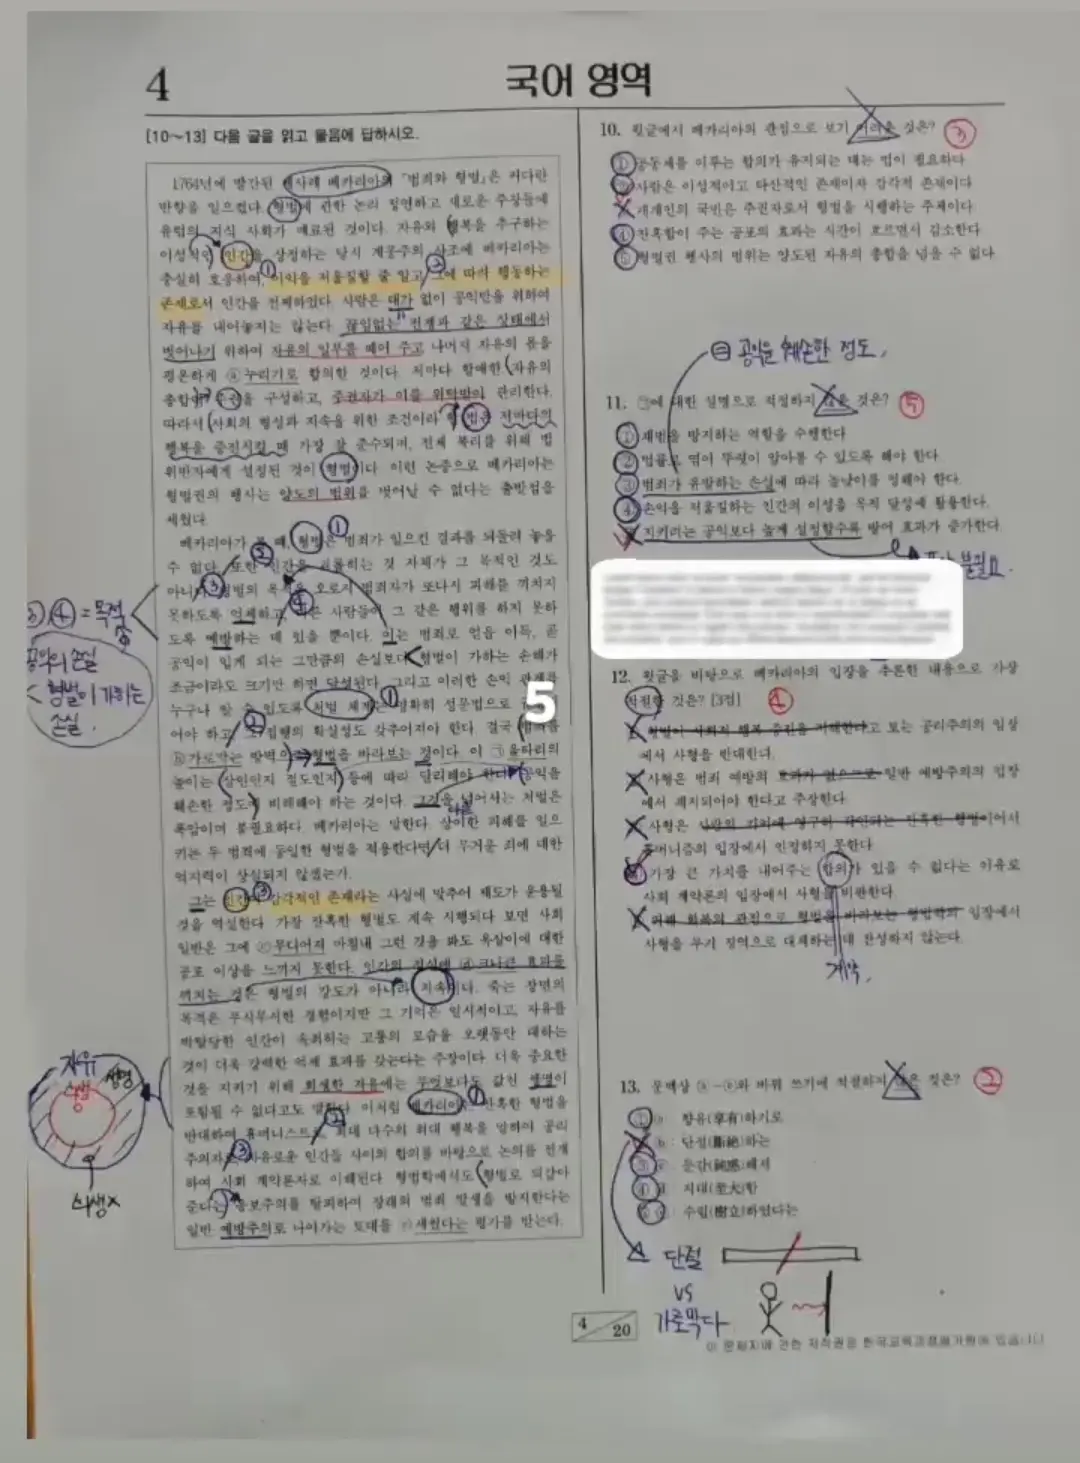 4
국어 영역
[10~13] 다음 글을 읽고 물음에 답하시오.
1764년에 발간된 체사레 베카리아의 『범죄와 형벌』은 커다란
반향을 일으켰다. 형벌에 관한 논리 정연하고 새로운 주장들에
유럽의 지식 사회가 매료된 것이다. 자유와 행복을 추구하는
이성적인 인간을 상정하는 당시 계몽주의 사조에 베카리아는
충실히 호응하여, 이익을 저울질할 줄 알고 그에 따라 행동하는
존재로서 인간을 전제하였다. 사람은 대가 없이 공익만을 위하여
자유를 내어놓지는 않는다. 끊임없는 전쟁과 같은 상태에서
벗어나기 위하여 자유의 일부를 떼어 주고 나머지 자유의 몫을
평온하게 ⓐ누리기로 합의한 것이다. 저마다 할애한 자유의
총합이 주권을 구성하고, 주권자가 이를 위탁받아 관리한다.
따라서 사회의 형성과 지속을 위한 조건이라 할 법은 저마다의
행복을 증진시킬 때 가장 잘 준수되며, 전체 복리를 위해 법
위반자에게 설정된 것이 형벌이다. 이런 논증으로 베카리아는
형벌권의 행사는 양도의 범위를 벗어날 수 없다는 출발점을
세웠다.
베카리아가 볼 때, 형벌은 범죄가 일으킨 결과를 되돌려 놓을
수 없다. 또한 인간을 괴롭히는 것 자체가 그 목적인 것도
아니다. 형벌의 목적은 오로지 범죄자가 또다시 피해를 끼치지
못하도록 억제하고, 다른 사람들이 그 같은 행위를 하지 못하
도록 예방하는 데 있을 뿐이다. 이는 범죄로 얻을 이득, 곧
공익이 입게 되는 그만큼의 손실보다 형벌이 가하는 손해가
조금이라도 크기만 하면 달성된다. 그리고 이러한 손익 관계를
누구나 알 수 있도록 처벌 체계는 명확히 성문법으로
어야 하고, 그 집행의 확실성도 갖추어져야 한다. 결국 범죄를
ⓑ가로막는 방벽으로 형벌을 바라보는 것이다. 이 ㉠울타리의
높이는 살인인지 절도인지 등에 따라 달리해야 한다. 공익을
훼손한 정도에 비례해야 하는 것이다. 그것을 넘어서는 처벌은
폭압이며 불필요하다. 베카리아는 말한다. 상이한 피해를 일으
키는 두 범죄에 동일한 형벌을 적용한다면 더 무거운 죄에 대한
억지력이 상실되지 않겠는가.
그는 인간이 감각적인 존재라는 사실에 맞추어 제도가 운용될
것을 역설한다. 가장 잔혹한 형벌도 계속 시행되다 보면 사회
일반은 그에 ⓒ무디어져 마침내 그런 것을 봐도 옥살이에 대한
공포 이상을 느끼지 못한다. 인간의 정신에 ⓓ크나큰 효과를
끼치는 것은 형벌의 강도가 아니라 지속이다. 죽는 장면의
목격은 무시무시한 경험이지만 그 기억은 일시적이고, 자유를
박탈당한 인간이 속죄하는 고통의 모습을 오랫동안 대하는
것이 더욱 강력한 억제 효과를 갖는다는 주장이다. 더욱 중요한
것을 지키기 위해 희생한 자유에는 무엇보다도 값진 생명이
포함될 수 없다고도 말한다. 이처럼 베카리아는 잔혹한 형벌을
반대하여 휴머니스트로, 최대 다수의 최대 행복을 말하여 공리
주의자로, 자유로운 인간들 사이의 합의를 바탕으로 논의를 전개
하여 사회 계약론자로 이해된다. 형법학에서도 형벌로 되갚아
준다는 응보주의를 탈피하여 장래의 범죄 발생을 방지한다는
일반 예방주의로 나아가는 토대를 ⓔ세웠다는 평가를 받는다.
③, ④ = 목적
공익의 손실
< 형벌이 가하는
손실.
자유
생명
희생
희생 X
5
10. 윗글에서 베카리아의 관점으로 보기 어려운 것은? ③
① 공동체를 이루는 합의가 유지되는 데는 법이 필요하다.
② 사람은 이성적이고 타산적인 존재이자 감각적 존재이다.
개개인의 국민은 주권자로서 형벌을 시행하는 주체이다.
④ 잔혹함이 주는 공포의 효과는 시간이 흐르면서 감소한다.
⑤ 형벌권 행사의 범위는 양도된 자유의 총합을 넘을 수 없다.
공익을 훼손한 정도,
11. ㉠에 대한 설명으로 적절하지 않은 것은? ⑤
① 재범을 방지하는 역할을 수행한다.
② 법률로 엮어 뚜렷이 알아볼 수 있도록 해야 한다.
③ 범죄가 유발하는 손실에 따라 높낮이를 정해야 한다.
④ 손익을 저울질하는 인간의 이성을 목적 달성에 활용한다.
지키려는 공익보다 높게 설정할수록 방어 효과가 증가한다.
불필요.
12. 윗글을 바탕으로 베카리아의 입장을 추론한 내용으로 가장
적절한 것은? [3점] ④
형벌이 사회적 행복 증진을 저해한다고 보는 공리주의의 입장
에서 사형을 반대한다.
사형은 범죄 예방의 효과가 없으므로 일반 예방주의의 입장
에서 폐지되어야 한다고 주장한다.
사형은 사람의 기억에 영구히 각인되는 잔혹한 형벌이어서
휴머니즘의 입장에서 인정하지 못한다.
가장 큰 가치를 내어주는 합의가 있을 수 없다는 이유로
사회 계약론의 입장에서 사형을 비판한다.
피해 회복의 관점으로 형벌을 바라보는 형법학의 입장에서
사형을 무기 징역으로 대체하는 데 찬성하지 않는다.
계약.
13. 문맥상 ⓐ~ⓔ와 바꿔 쓰기에 적절하지 않은 것은? ②
① ⓐ : 향유(享有)하기로
ⓑ : 단절(斷絶)하는
③ ⓒ : 둔감(鈍感)해져
④ ⓓ : 지대(至大)한
⑤ ⓔ : 수립(樹立)하였다는
단절
vs
가로막다
4 / 20
이 문제지에 관한 저작권은 한국교육과정평가원에 있습니다.